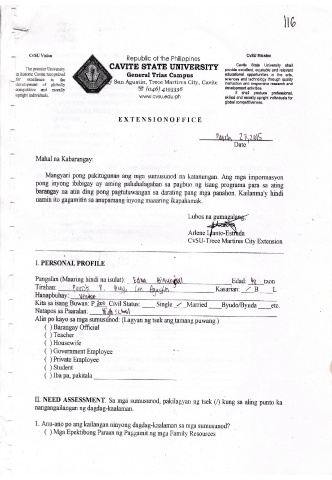 116
CvSU Vision
The premier University
in historic Cavite recognized
for excellence in the
development of globally
competitive and morally
upright individuals.
Republic of the Philippines
CAVITE STATE UNIVERSITY
General Trias Campus
San Agustin, Trece Martires City, Cavite
☎ (046) 4199356
www.cvsu.edu.ph
CvSU Mission
Cavite State University shall
provide excellent, equitable and relevant
educational opportunities in the arts,
sciences and technology through quality
instruction and responsive research and
development activities.
It shall produce professional,
skilled and morally upright individuals for
global competitiveness.
EXTENSION OFFICE
Date
Mahal na Kabarangay:
Mangyari pong pakitugunan ang mga sumusunod na katanungan. Ang mga impormasyon
pong inyong ibibigay ay aming pahahalagahan sa pagbuo ng isang programa para sa ating
barangay na atin ding pong pagtutuwangan sa darating pang mga panahon. Kailanma'y hindi
namin ito gagamitin sa anupamang inyong maaaring ikapahamak.
Lubos na gumagalang,
Arlene Estrada
CvSU-Trece Martires City Extension
I. PERSONAL PROFILE
Pangalan (Maaring hindi na isulat): Edna Edad: taon
Tirahan: San Agustin Kasarian: / B L
Hanapbuhay:
Kita sa isang Buwan: P Civil Status: Single / Married Byudo/Byuda etc.
Natapos sa Paaralan: High School
Alin po kayo sa mga sumusunod: (Lagyan ng tsek ang tamang puwang.)
( ) Barangay Official
( ) Teacher
( ) Housewife
( ) Government Employee
( ) Private Employee
( ) Student
( ) Iba pa, pakitala
II. NEED ASSESSMENT. Sa mga sumusunod, pakilagyan ng tsek (/) kung sa aling punto ka
nangangailangan ng dagdag-kaalaman.
1. Anu-ano po ang kailangan ninyong dagdag-kaalaman sa mga sumusunod?
( ) Mga Epektibong Paraan ng Paggamit ng mga Family Resources